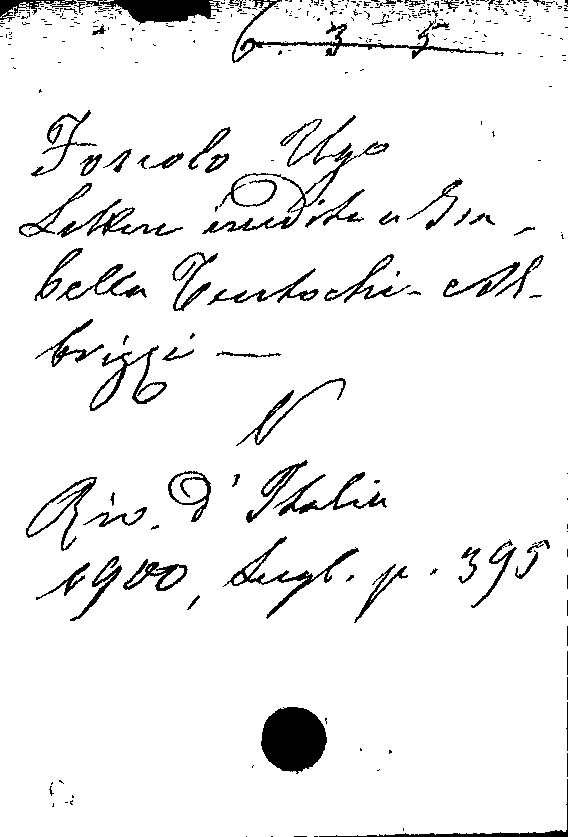 6. 3. 5
Foscolo Ugo
Lettere inedite a Isa-
bella Teotochi-Al-
brizzi —
V
Riv. d'Italia
1900, Lugl. p. 395